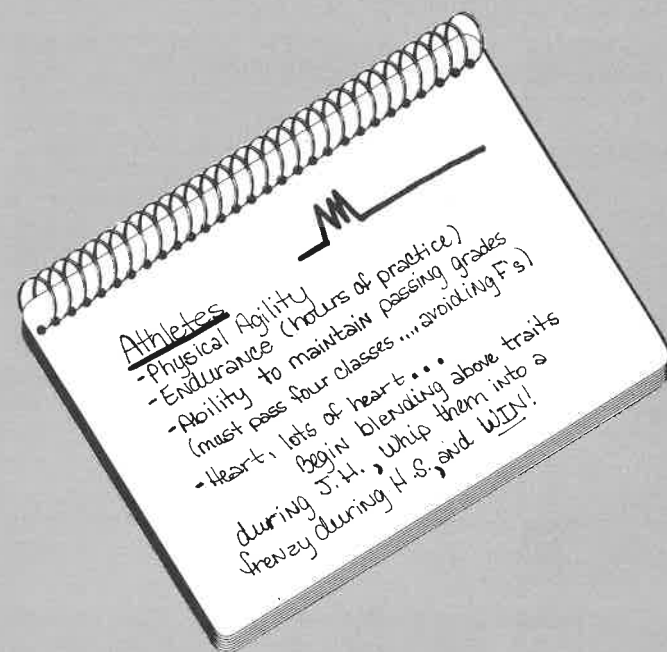 Athletes
-Physical Agility
-Endurance (hours of practice)
-Ability to maintain passing grades
(must pass four classes....avoiding Fs)
-Heart, lots of heart...
Begin blending above traits
during J.H., whip them into a
frenzy during H.S., and WIN!